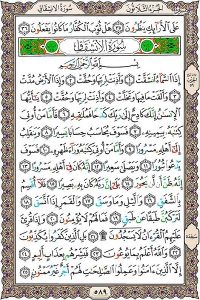 سورة الانشقاق الجزء الثلاثون
على الأرائك ينظرون ٣٥ هل ثوب الكفار ما كانوا يفعلون ٣٦
سورة الانشقاق
بسم الله الرحمن الرحيم
إذا السماء انشقت ١ وأذنت لربها وحقت ٢ وإذا الأرض مدت
٣ وألقت ما فيها وتخلت ٤ وأذنت لربها وحقت ٥ يا أيها
الإنسان إنك كادح إلى ربك كدحا فملاقيه ٦ فأما من أوتي
كتابه بيمينه ٧ فسوف يحاسب حسابا يسيرا ٨ وينقلب
إلى أهله مسرورا ٩ وأما من أوتي كتابه وراء ظهره ١٠ فسوف
يدعو ثبورا ١١ ويصلى سعيرا ١٢ إنه كان في أهله مسرورا ١٣
إنه ظن أن لن يحور ١٤ بلى إن ربه كان به بصيرا ١٥ فلا أقسم
بالشفق ١٦ والليل وما وسق ١٧ والقمر إذا اتسق ١٨
لتركبن طبقا عن طبق ١٩ فما لهم لا يؤمنون ٢٠ وإذا قرئ
عليهم القرآن لا يسجدون ۩ ٢١ بل الذين كفروا يكذبون
٢٢ والله أعلم بما يوعون ٢٣ فبشرهم بعذاب أليم ٢٤
إلا الذين آمنوا وعملوا الصالحات لهم أجر غير ممنون ٢٥
٥٨٩